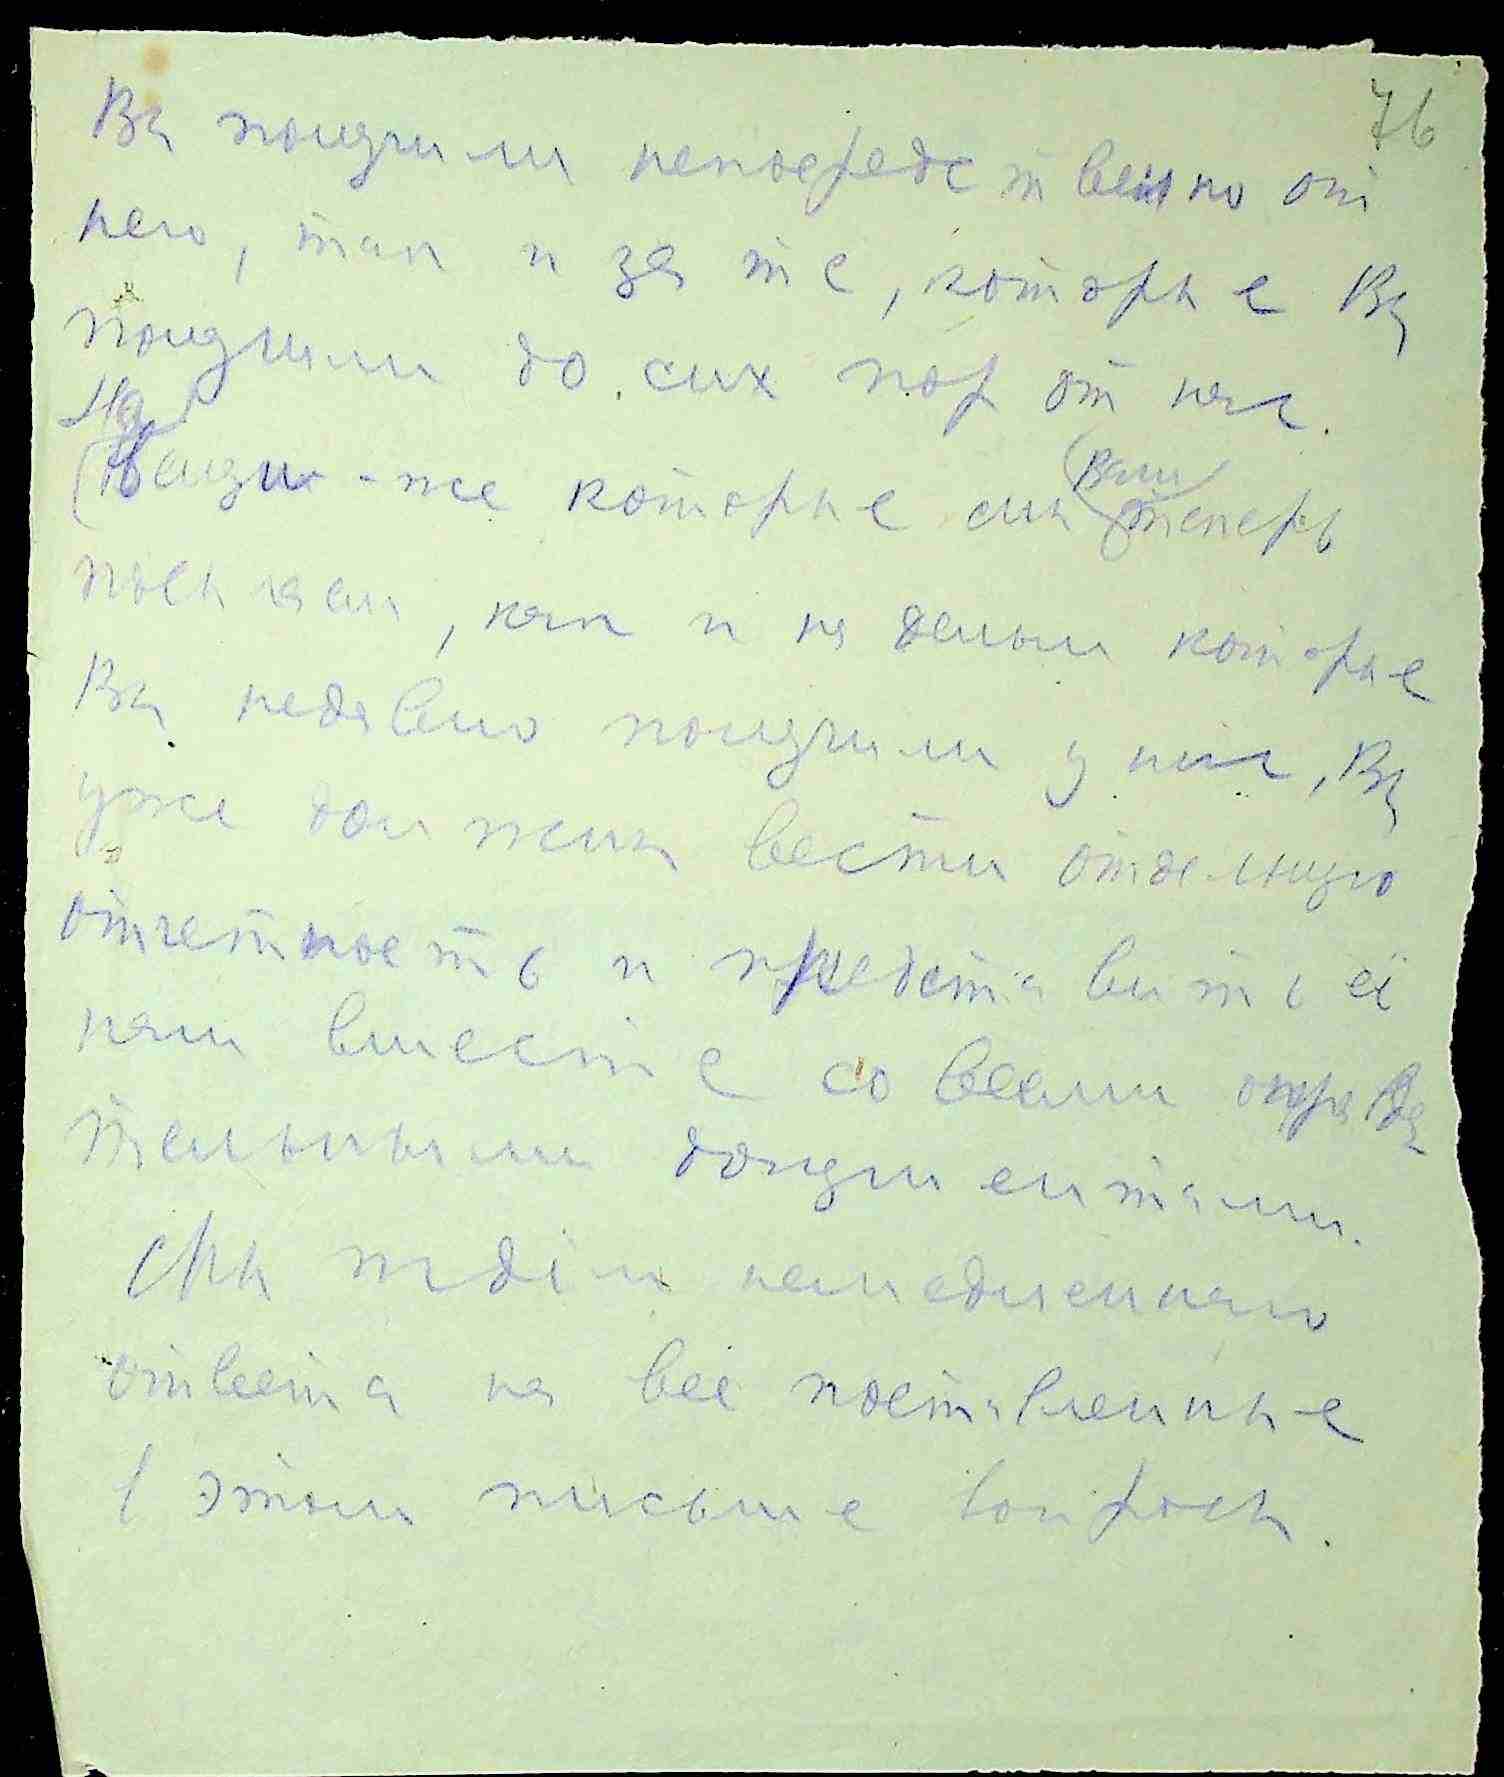 76
Вы получили непосредственно от
него, так и за те, которые Вы
получили до сих пор от нас.
На
-же которые мы Вам теперь
посылаем, как и на деньги которые
Вы недавно получили у нас, Вы
уже должны вести отдельную
отчетность и представить её
нам вместе со всеми оправда-
тельными документами.
Мы ждём немедленного
ответа на все поставленные
в этом письме вопросы.